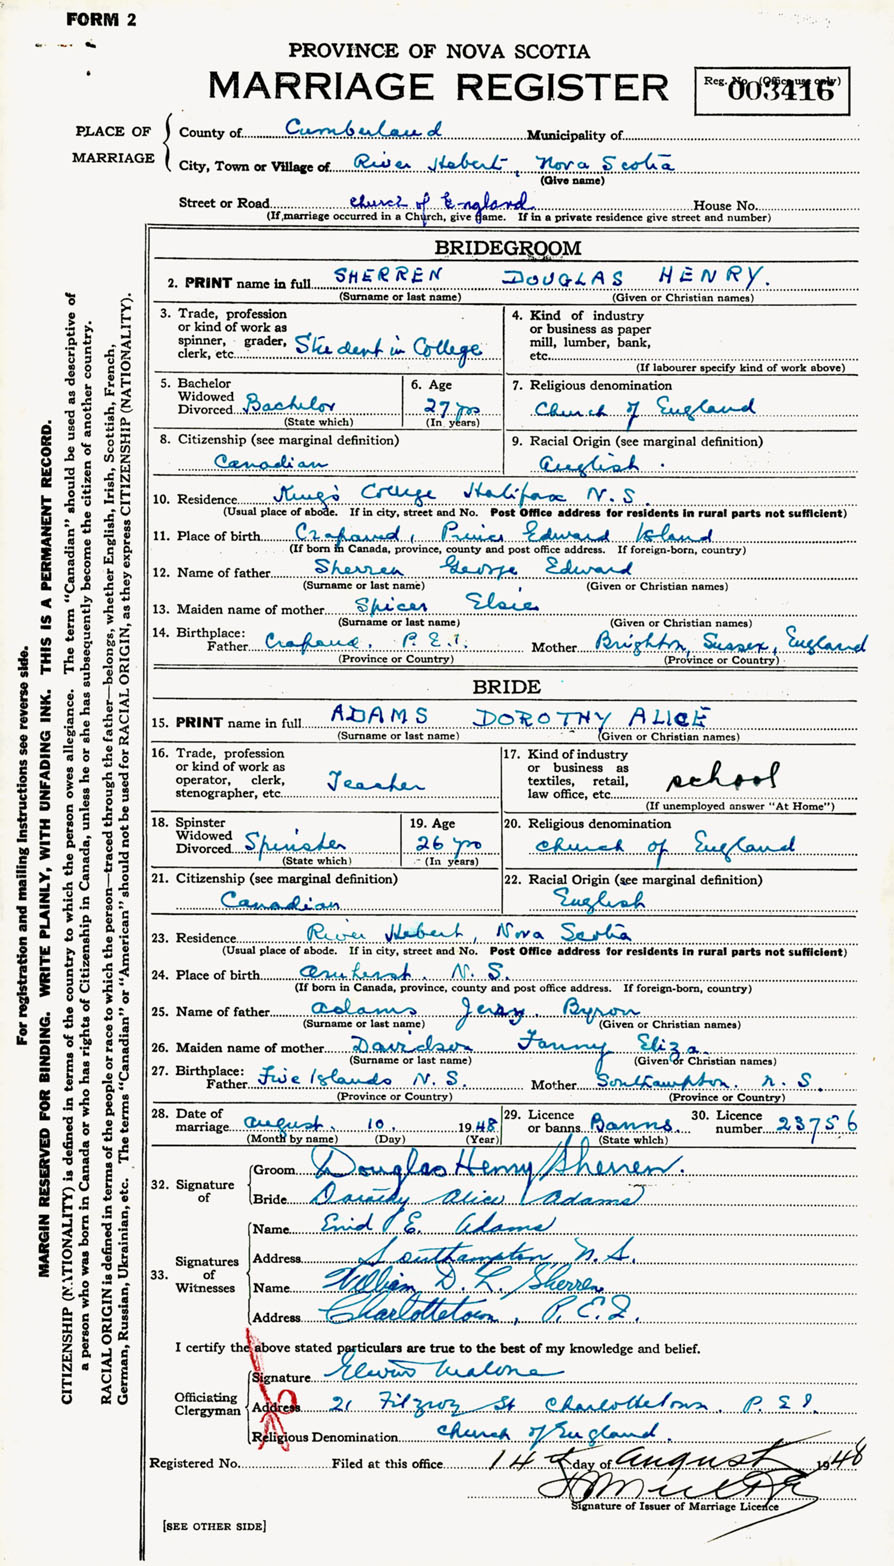 FORM 2
PROVINCE OF NOVA SCOTIA
MARRIAGE REGISTER
Reg. No. (Office use only)
003416
PLACE OF MARRIAGE
County of Cumberland Municipality of
City, Town or Village of River Hebert, Nova Scotia
(Give name)
Street or Road church of England House No.
(If marriage occurred in a Church, give name. If in a private residence give street and number)
BRIDEGROOM
2. PRINT name in full SHERREN DOUGLAS HENRY.
(Surname or last name) (Given or Christian names)
3. Trade, profession
or kind of work as
spinner, grader,
clerk, etc. Student in College
4. Kind of industry
or business as paper
mill, lumber, bank,
etc.
(If labourer specify kind of work above)
5. Bachelor
Widowed
Divorced Bachelor
(State which)
6. Age
27 yrs
(In years)
7. Religious denomination
Church of England
8. Citizenship (see marginal definition)
Canadian
9. Racial Origin (see marginal definition)
English.
10. Residence King's College Halifax N.S.
(Usual place of abode. If in city, street and No. Post Office address for residents in rural parts not sufficient)
11. Place of birth Crapaud, Prince Edward Island
(If born in Canada, province, county and post office address. If foreign-born, country)
12. Name of father Sherren George Edward
(Surname or last name) (Given or Christian names)
13. Maiden name of mother Spicer Elsie
(Surname or last name) (Given or Christian names)
14. Birthplace:
Father Crapaud, P.E.I. Mother Brighton, Sussex, England
(Province or Country) (Province or Country)
BRIDE
15. PRINT name in full ADAMS DOROTHY ALICE
(Surname or last name) (Given or Christian names)
16. Trade, profession
or kind of work as
operator, clerk,
stenographer, etc. Teacher
17. Kind of industry
or business as
textiles, retail,
law office, etc. school
(If unemployed answer "At Home")
18. Spinster
Widowed
Divorced Spinster
(State which)
19. Age
26 yrs
(In years)
20. Religious denomination
church of England
21. Citizenship (see marginal definition)
Canadian
22. Racial Origin (see marginal definition)
English
23. Residence River Hebert, Nova Scotia
(Usual place of abode. If in city, street and No. Post Office address for residents in rural parts not sufficient)
24. Place of birth Amherst. N.S.
(If born in Canada, province, county and post office address. If foreign-born, country)
25. Name of father Adams Byron
(Surname or last name) (Given or Christian names)
26. Maiden name of mother Davidson Fanny Eliza
(Surname or last name) (Given or Christian names)
27. Birthplace:
Father Five Islands N.S. Mother Southampton. N.S.
(Province or Country) (Province or Country)
28. Date of
marriage August. 10. 1948
(Month by name) (Day) (Year)
29. Licence
or banns Banns
(State which)
30. Licence
number 23756
32. Signature
of
Groom Douglas Henry Sherren.
Bride Dorothy Alice Adams
33. Signatures
of
Witnesses
Name Enid P.E. Adams
Address Southampton, N.S.
Name William D. L. Sherren
Address Charlottetown, P.E.I.
I certify the above stated particulars are true to the best of my knowledge and belief.
Officiating
Clergyman
Signature Malone
Address 21 Fitzroy St Charlottetown, P.E.I.
Religious Denomination church of England.
Registered No. Filed at this office 14th day of August 1948
Signature of Issuer of Marriage Licence
[SEE OTHER SIDE]
For registration and mailing instructions see reverse side.
MARGIN RESERVED FOR BINDING. WRITE PLAINLY, WITH UNFADING INK. THIS IS A PERMANENT RECORD.
CITIZENSHIP (NATIONALITY) is defined in terms of the country to which the person owes allegiance. The term "Canadian" should be used as descriptive of
a person who was born in Canada or who has rights of Citizenship in Canada, unless he or she has subsequently become the citizen of another country.
RACIAL ORIGIN is defined in terms of the people or race to which the person—traced through the father—belongs, whether English, Irish, Scottish, French,
German, Russian, Ukrainian, etc. The terms "Canadian" or "American" should not be used for RACIAL ORIGIN, as they express CITIZENSHIP (NATIONALITY).